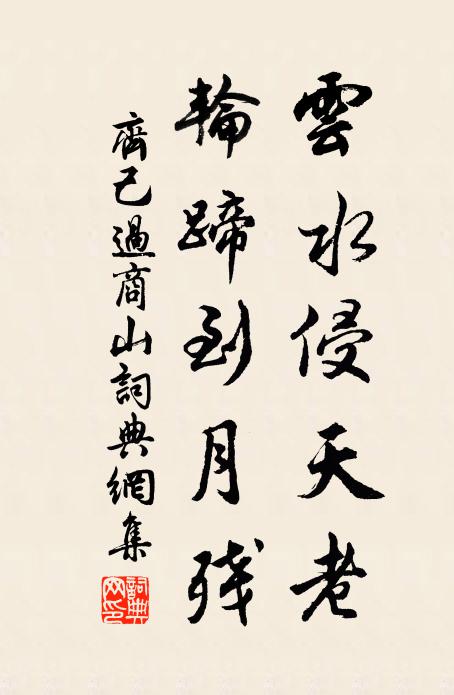 雲水侵天老
輪蹄到月殘
齊己過商山詞典網集
詞典網印